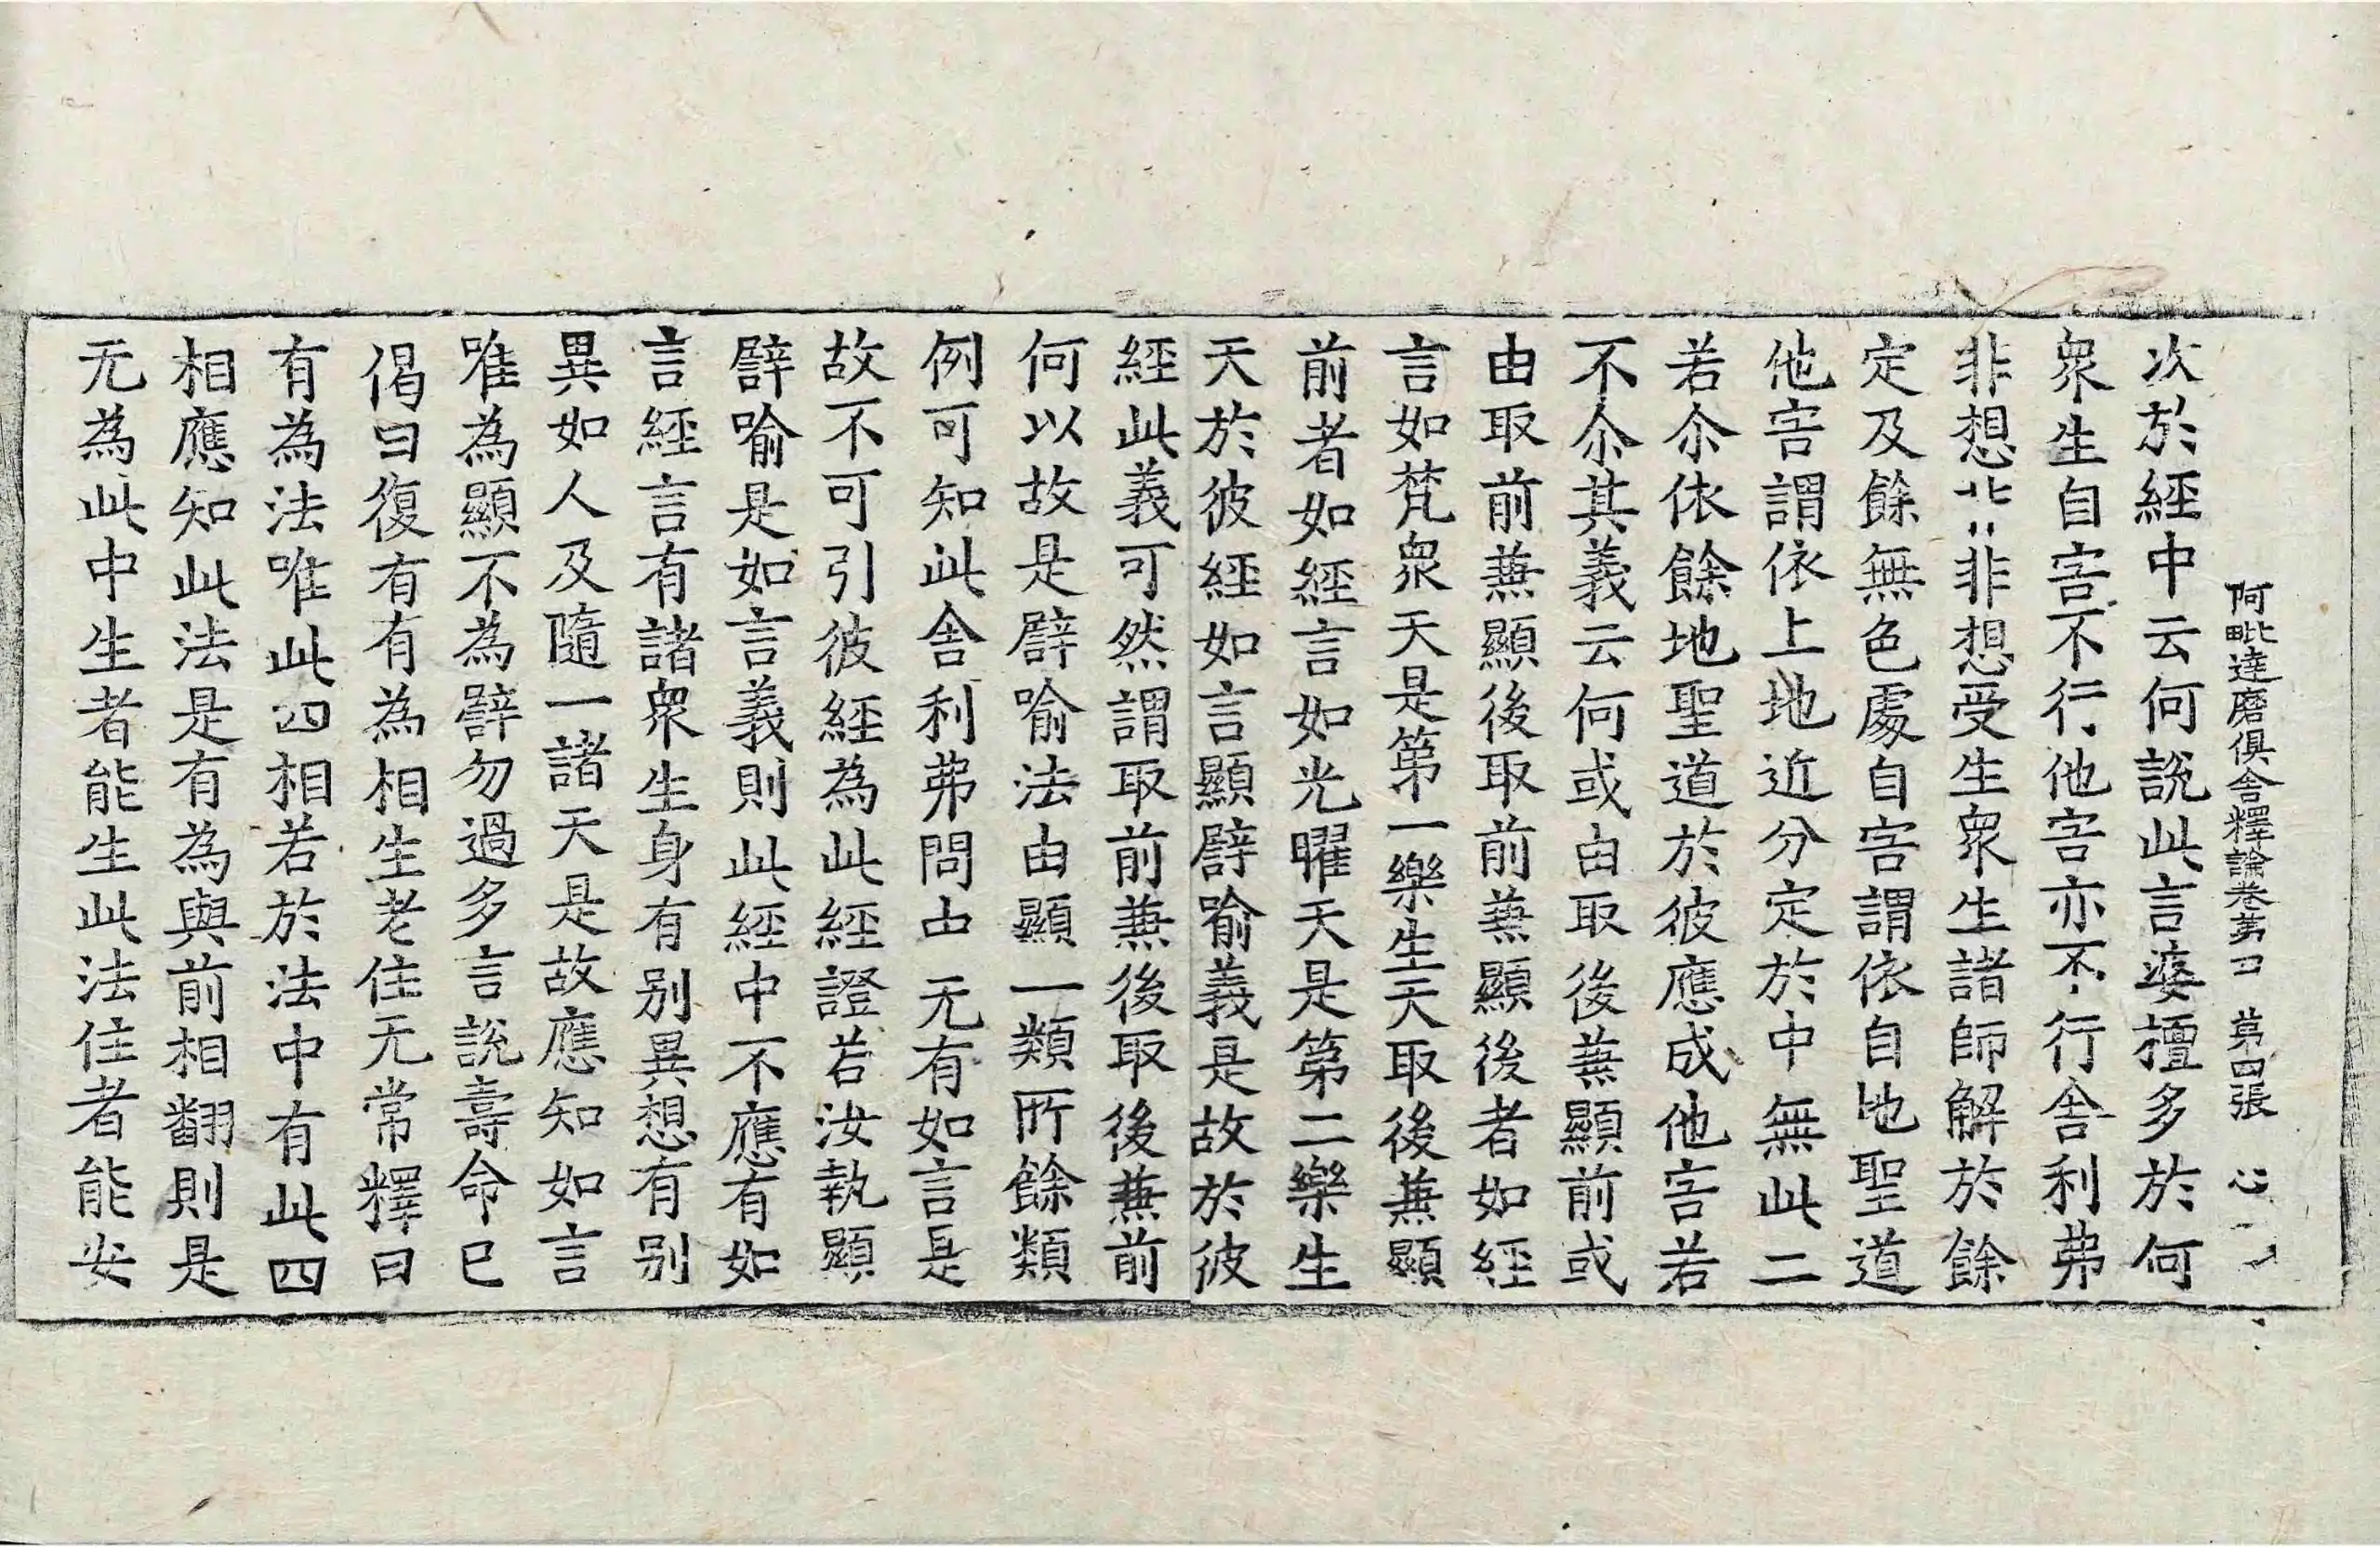 阿毗達磨俱舍釋論卷第四　第四張　心
次於經中云何說此言婆擅多於何
衆生自害不行他害亦不行舍利弗
非想非非想受生衆生諸師解於餘
定及餘無色處自害謂依自地聖道
他害謂依上地近分定於中無此二
若尒依餘地聖道於彼應成他害若
不尒其義云何或由取後兼顯前或
由取前兼顯後取前兼顯後者如經
言如梵衆天是第一樂生天取後兼顯
前者如經言如光曜天是第二樂生
天於彼經如言顯譬喻義是故於彼
經此義可然謂取前兼後取後兼前
何以故是譬喻法由顯一類所餘類
例可知此舍利弗問中无有如言是
故不可引彼經為此經證若汝執顯
譬喻是如言義則此經中不應有如
言經言有諸衆生身有别異想有别
異如人及隨一諸天是故應知如言
唯為顯不為譬勿過多言說壽命已
偈曰復有有為相生老住无常釋曰
有為法唯此四相若於法中有此四
相應知此法是有為與前相翻則是
无為此中生者能生此法住者能安